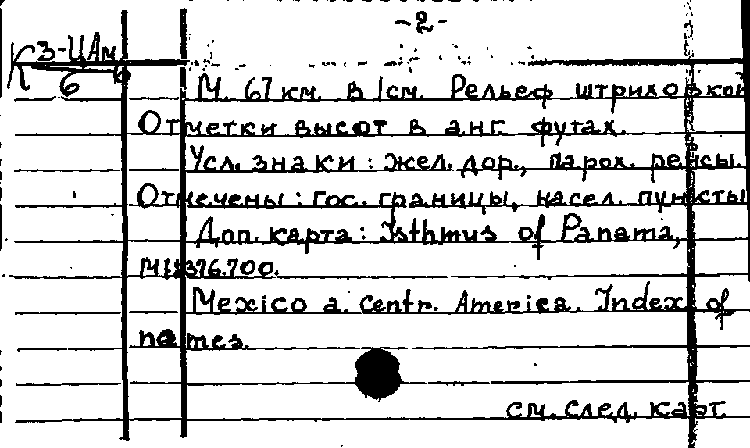 -2-
К 3-ЦАм
6
М. 67 км. в 1 см. Рельеф штриховкой
Отметки высот в анг. футах.
Усл. знаки: жел. дор., парох. рейсы.
Отмечены: гос. границы, насел. пункты
Доп. карта: Isthmus of Panama,
М 1:8376.700.
Mexico a. Centr. America. Index of
names.
см. след. карт.